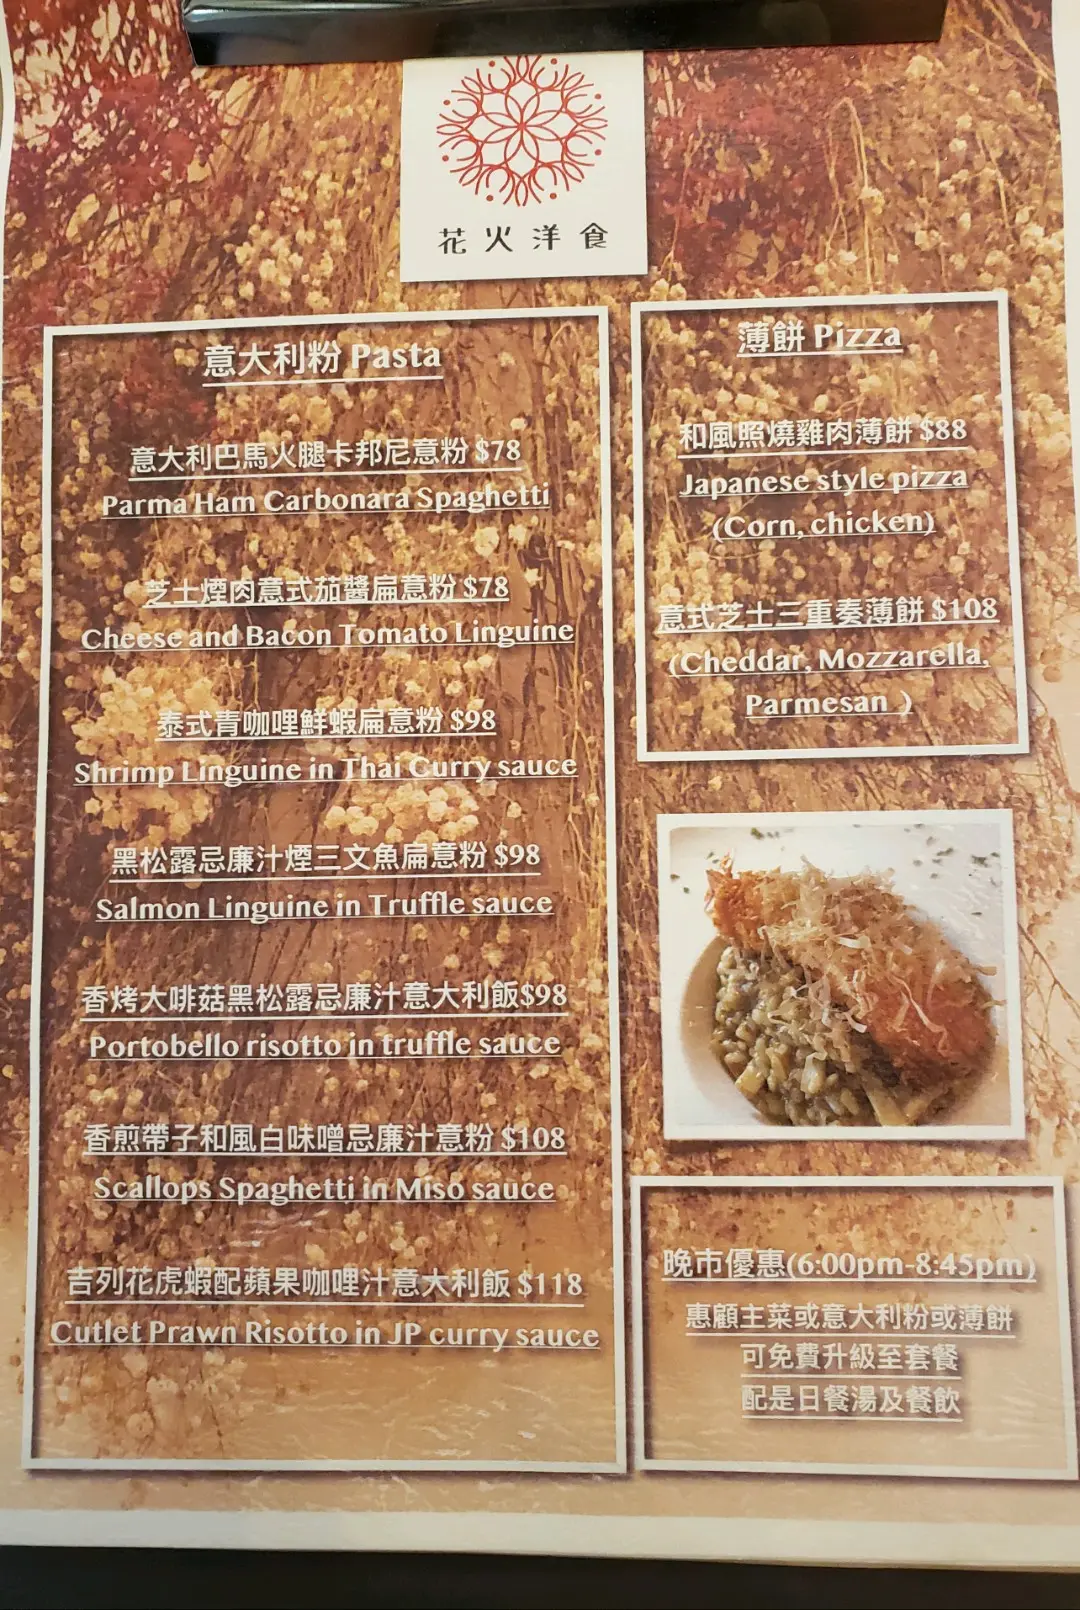 花火洋食
意大利粉 Pasta
意大利巴馬火腿卡邦尼意粉 $78
Parma Ham Carbonara Spaghetti
芝士煙肉意式茄醬扁意粉 $78
Cheese and Bacon Tomato Linguine
泰式青咖哩鮮蝦扁意粉 $98
Shrimp Linguine in Thai Curry sauce
黑松露忌廉汁煙三文魚扁意粉 $98
Salmon Linguine in Truffle sauce
香烤大啡菇黑松露忌廉汁意大利飯$98
Portobello risotto in truffle sauce
香煎帶子和風白味噌忌廉汁意粉 $108
Scallops Spaghetti in Miso sauce
吉列花虎蝦配蘋果咖哩汁意大利飯 $118
Cutlet Prawn Risotto in JP curry sauce
薄餅 Pizza
和風照燒雞肉薄餅 $88
Japanese style pizza
(Corn, chicken)
意式芝士三重奏薄餅 $108
(Cheddar, Mozzarella,
Parmesan )
晚市優惠(6:00pm-8:45pm)
惠顧主菜或意大利粉或薄餅
可免費升級至套餐
配是日餐湯及餐飲